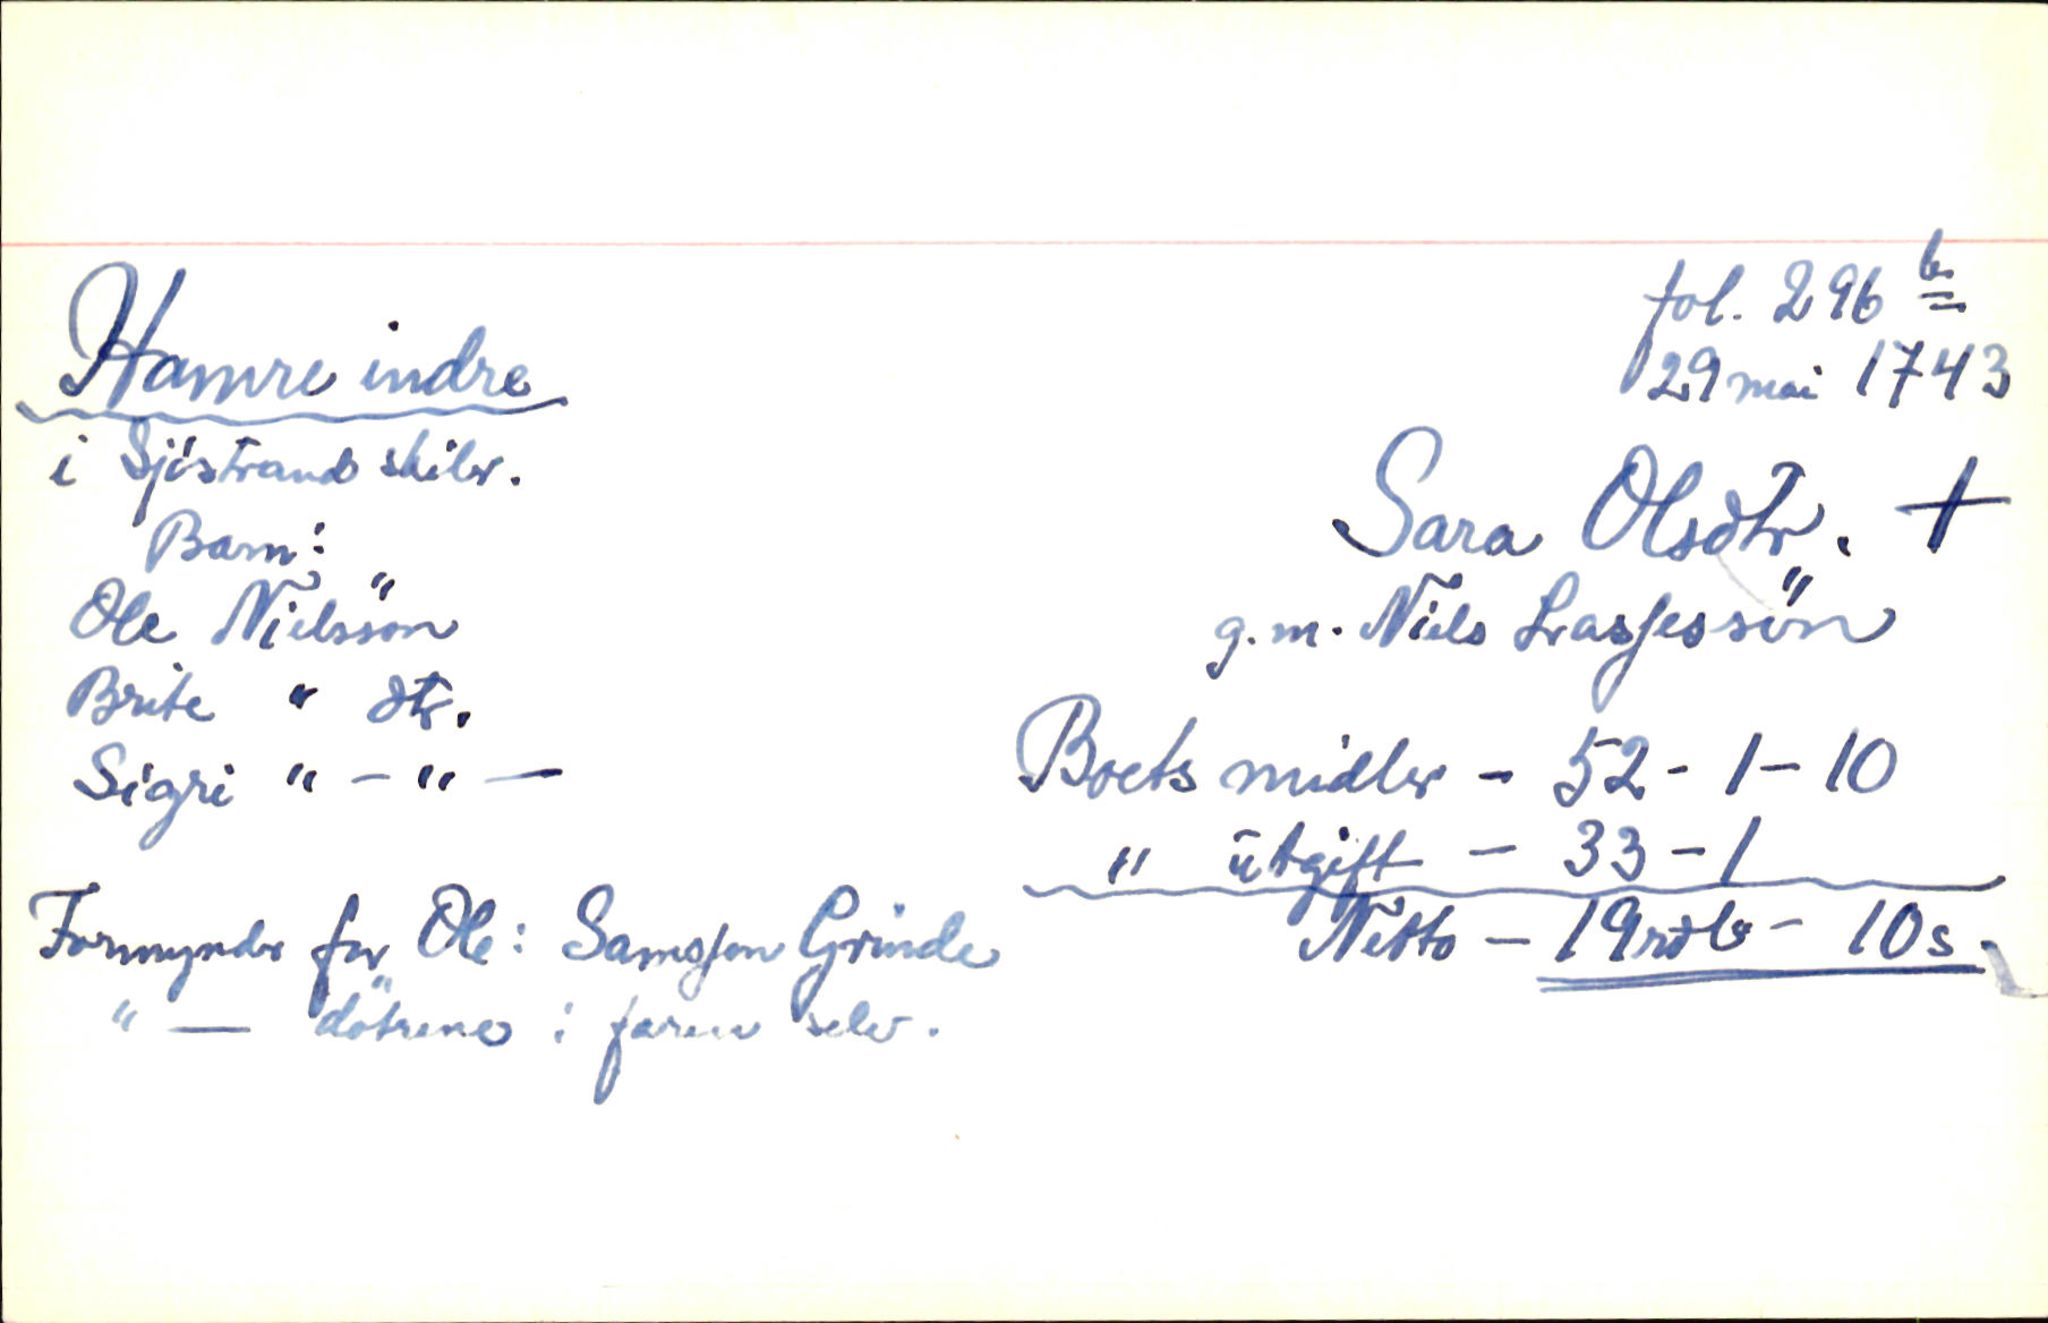 fol. 296 b
29 mai 1743
Hamre indre
i Sjöstrand skibr.
Sara Olsdtr. +
g.m. Niels Lassesön
Barn:
Ole Nielssön
Brite " dtr.
Sigri " - " -
Boets midler - 52 - 1 - 10
" ūtgift - 33 - 1
Netto - 19 rdlr - 10 s.
Formynder for Ole: Samson Grinde
" — dötrene : faren selv.